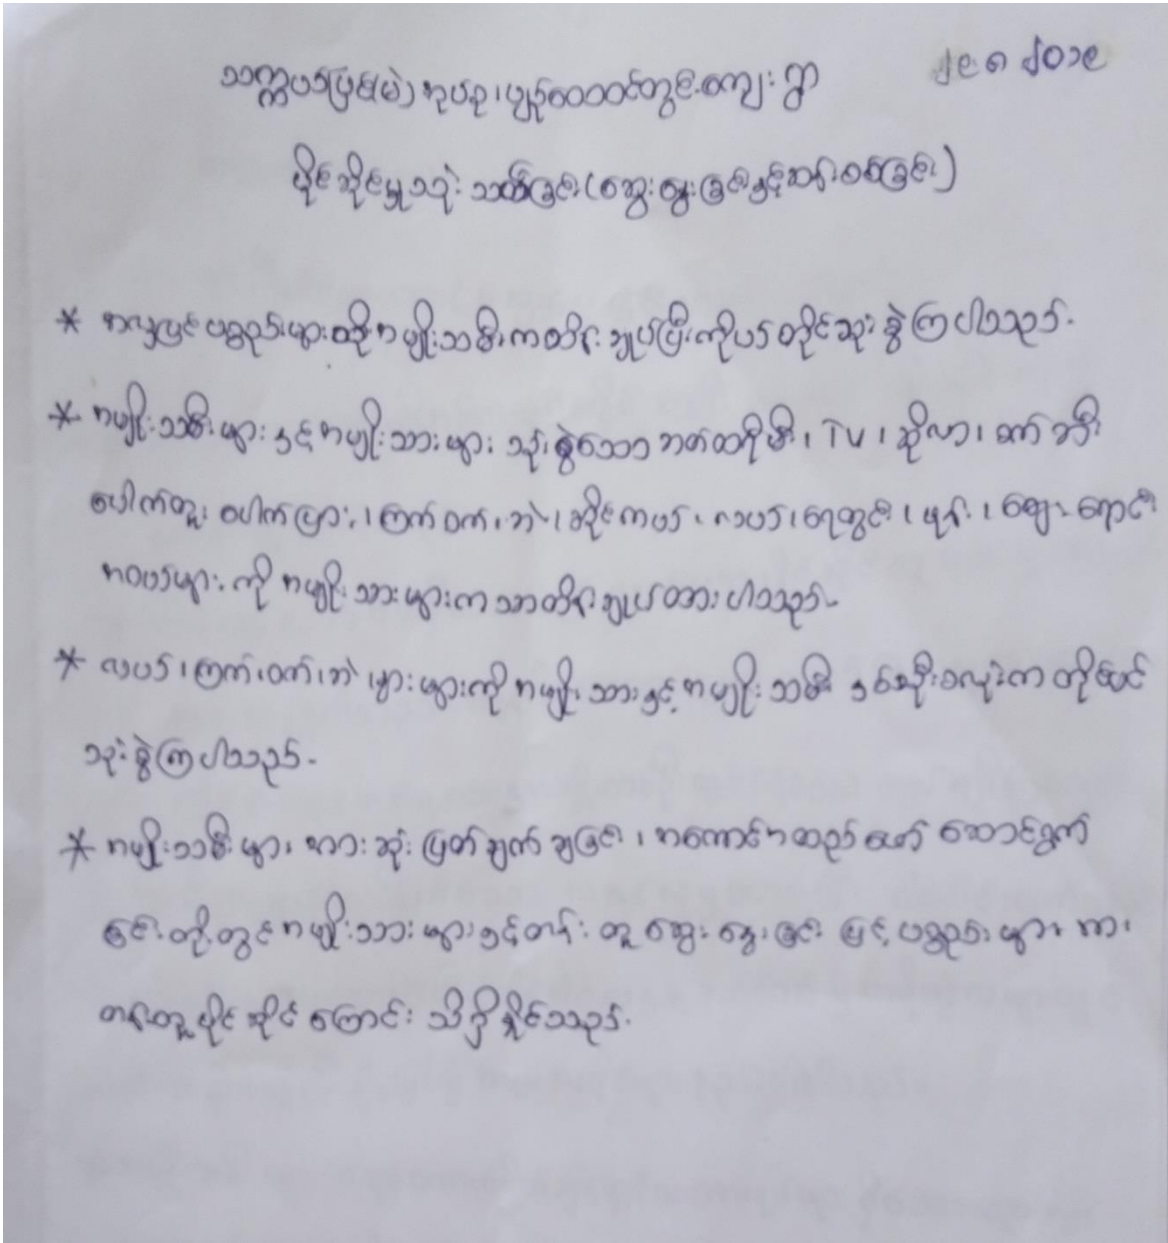 ၂၉.၈ ၂၀၁၉
သက္ကယ်ပြင်(မဲ) အုပ်စု၊ ကျေးရွာ
ပိုင်ဆိုင်မှုသုံး သပ်ခြင်း (ဆွေးနွေးခြင်းနှင့်ဆန်းစစ်ခြင်း)
* အလှပြင်ပစ္စည်းများထို အမျိုးသမီးကထိန်းချုပ်ပြီးကိုယ်တိုင်သုံးစွဲကြပါသည်။
* အမျိုးသမီးများနှင့်အမျိုးသားများ သုံးစွဲသော ဓာတ်ထရီမီး၊ TV၊ ဆိုလာ၊ စက်ဘီး
ပေါက်တူး ပေါက်ပြား၊ ကြက်၊ ဝက်၊ ဘဲ၊ ဆိုင်ကယ်၊ လယ်၊ ရေတွင်း၊ ဖုန်း၊ ဈေးရောင်း
အဝယ်များကို အမျိုးသားများကသာထိန်းချုပ်ထားပါသည်။
* လယ်၊ ကြက်၊ ဝက်၊ ဘဲ များကို အမျိုးသားနှင့် အမျိုးသမီး နှစ်ဦးစလုံးက တိုင်ပင်
သုံးစွဲကြပါသည်။
* အမျိုးသမီးများအားဆုံးဖြတ်ချက်ချခြင်း၊ အကောင်အထည်ဖော် ဆောင်ရွက်
ခြင်းတို့တွင်အမျိုးသားများနှင့်တန်းတူဆွေးနွေးခြင်းဖြင့်ပစ္စည်းများအား
တန်းတူပိုင်ဆိုင်ကြောင်းသိရှိနိုင်သည်။